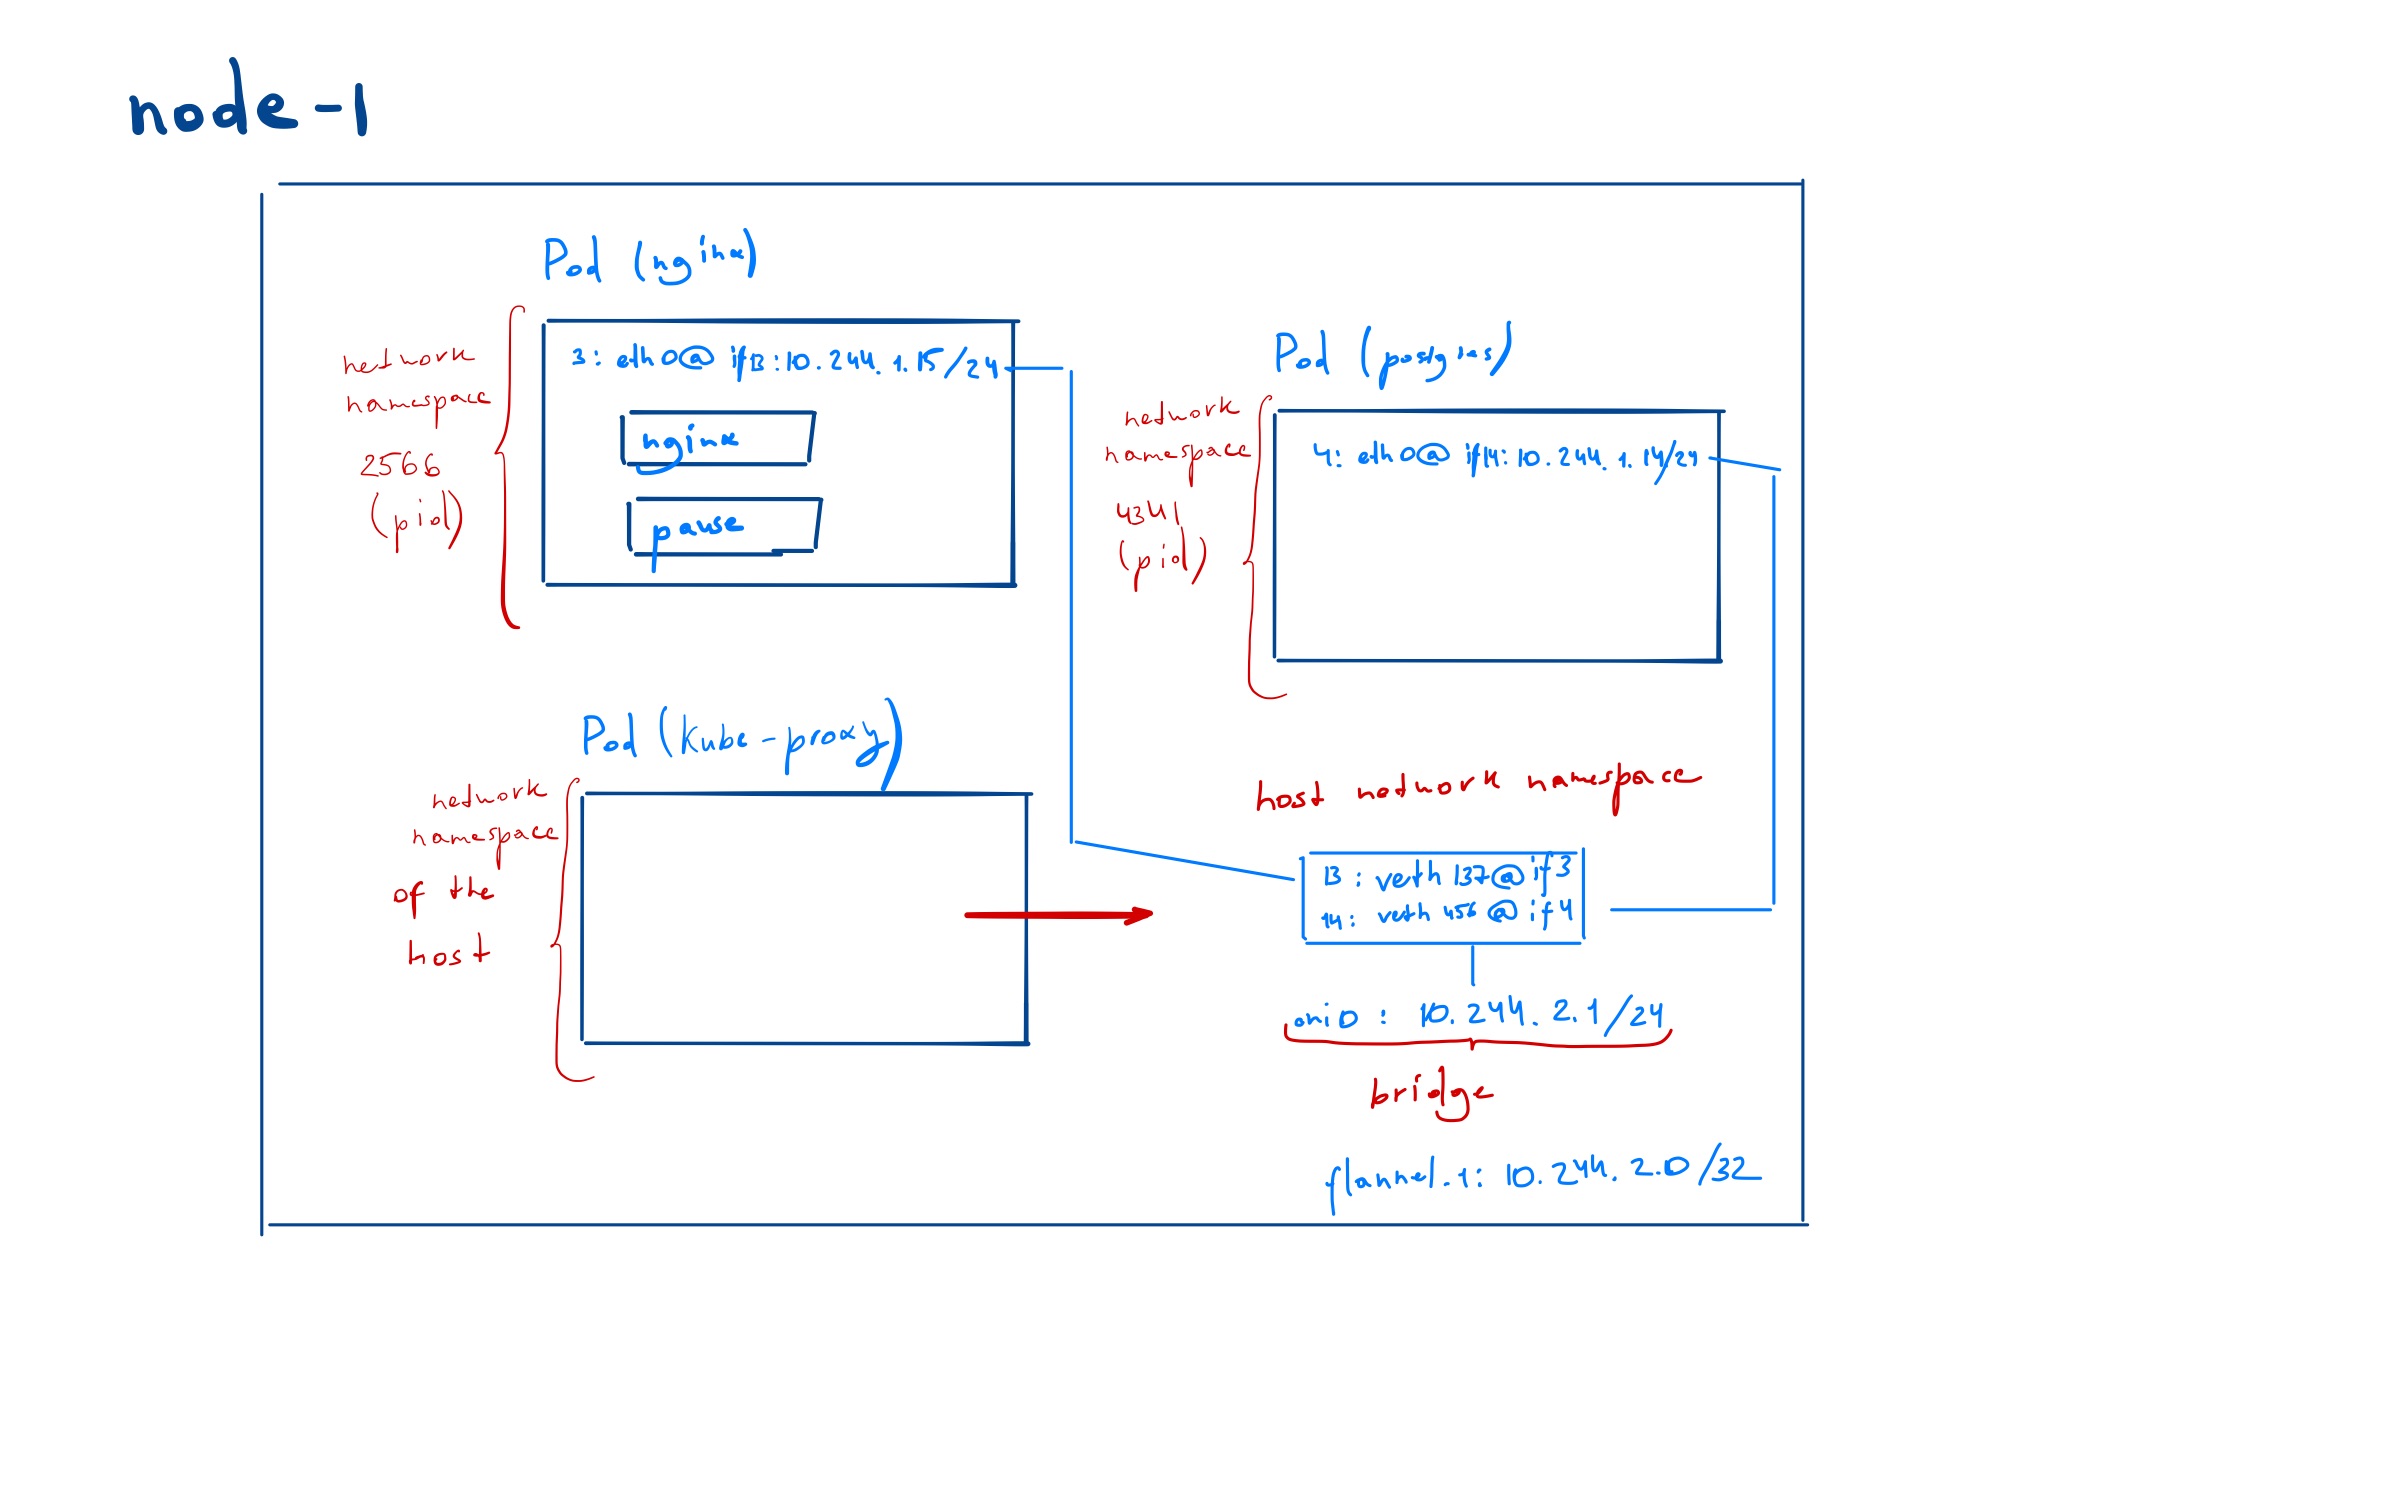 node-1
Pod (nginx)
network
namespace
2566
(pid)
3: eth0@if13:10.244.1.15/24
nginx
pause
Pod (postgres)
network
namespace
4341
(pid)
4: eth0@if14:10.244.1.14/24
Pod (kube-proxy)
network
namespace
of the
host
host network namespace
13: veth137@if3
14: veth456@if4
cni0: 10.244.2.1/24
bridge
flannel.1: 10.244.2.0/32